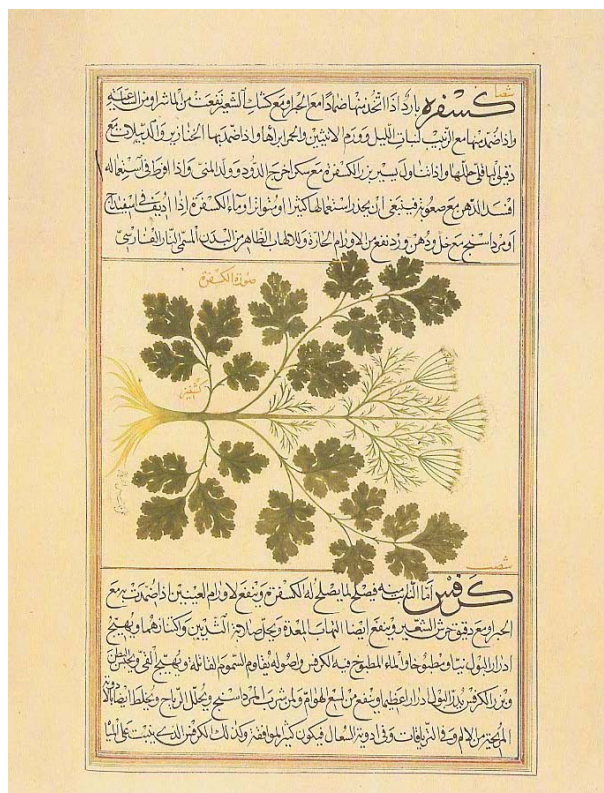 كسفره بارد اذا اتخذ منها ضمادا مع الخبز او مع كشك الشعير نفعت من الماشرا ومن النملة
واذا ضمد بها مع الزيت لنبات الليل وورم الانثيين والجمر ابرأها واذا ضمد بها الخنازير والدبيلات مع
دقيق باقلى حللها واذا تناول يسير بزر الكسفرة مع سكر اخرج الدود وولد المنى واذا افرط في استعماله
افسد الذهن مع صعوبة فينبغي ان يحذر استعمالها كثيرا ومتواترا وماء الكسفرة اذا اديف في اسفيداج
او مرداسنج مع خل ودهن ورد نفع من الاورام الحارة وللالهاب الظاهر من البدن المسمى النار الفارسي
صورة الكسفرة
كرفس اما البستاني منه فيصلح لما يصلح له الكسفرة وينفع لاورام العينين اذا ضمدت به مع
الخبز او مع دقيق الشعير وينفع ايضا التهاب المعدة ويحل صلابة الثديين واكنازهما ويهيج
ادرار البول نيا ومطبوخا والماء المطبوخ فيه الكرفس واصوله يقاوم السموم القاتلة ويهيج القي ويحبس البطن
وبزر الكرفس يدر البول ادرارا عظيما وينفع من لسع الهوام ولمن شرب المرداسنج ويحلل الرياح ويخلط ايضا بالادوية
المريحة من الالم وفي الترياقات وفي ادوية السعال فيكون كثير الموافقة وكذلك الكرفس الذي ينبت على المياه